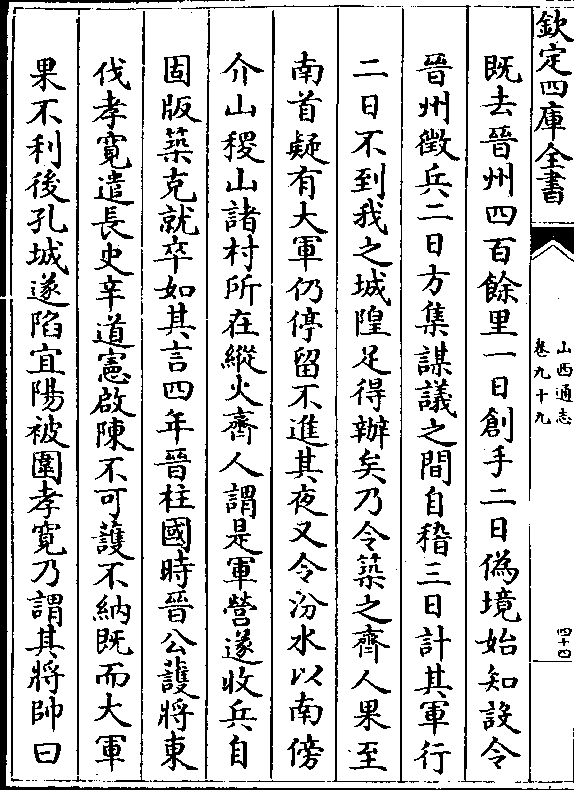 欽定四庫全書
山西通志
卷九十九
四十四
既去晉州四百餘里一日創手二日偽境始知設令
晉州徵兵二日方集謀議之間自稽三日計其軍行
二日不到我之城隍足得辦矣乃令築之齊人果至
南首疑有大軍仍停留不進其夜又令汾水以南傍
介山稷山諸村所在縱火齊人謂是軍營遂收兵自
固版築克就卒如其言四年晉柱國時晉公護將東
伐孝寬遣長史辛道憲啟陳不可護不納既而大軍
果不利後孔城遂陷宜陽被圍孝寬乃謂其將帥曰